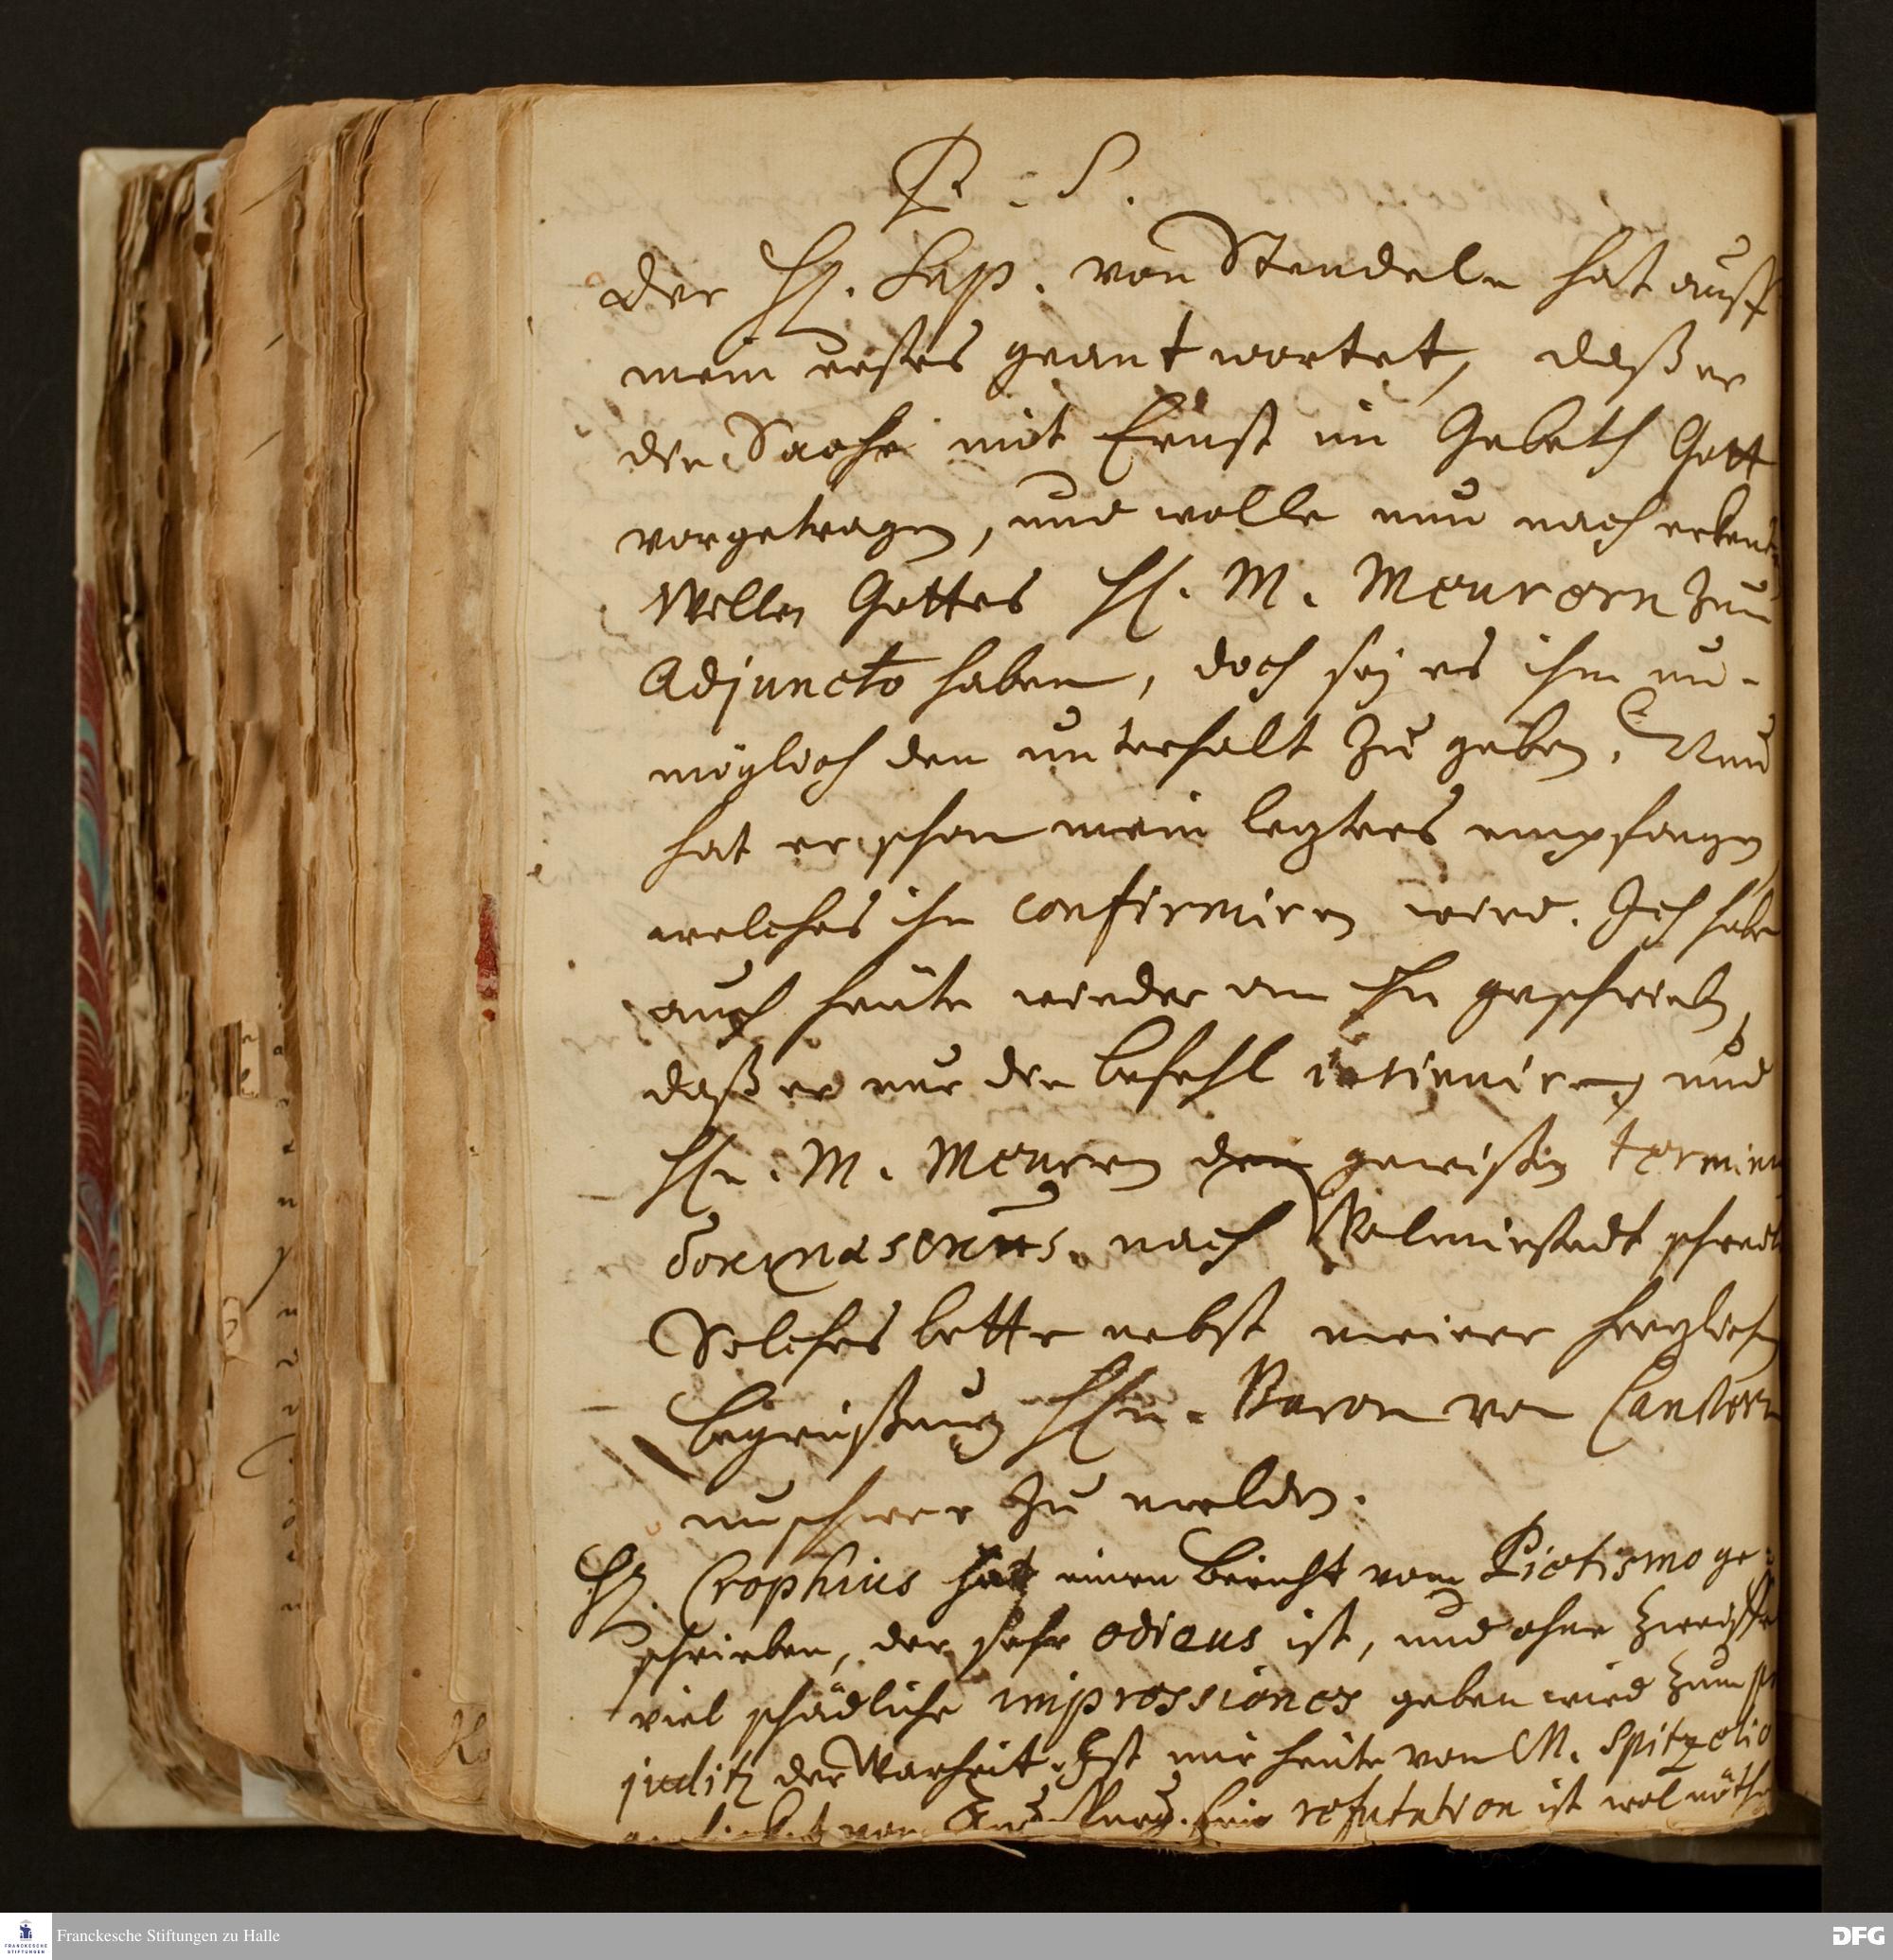 P. S.
der H. Sup. von Stendeln hat auff
mein erstes geantwortet, daß er
die Sache mit Ernst im Gebeth Gott
vorgetragen, und wolle nun nach erkend
Willen Gottes H. M. Meurern zum
Adjuncto haben, doch sey es ihm un-
möglich den unterhalt zu geben. Nun
hat er schon mein leztes empfangen,
welches ihn confirmiren wird. Ich habe
auch heüte wieder an ihn geschrieben,
daß er nur den befehl und
Hn. M. Meurern den gewißen termin
δοκιμασίας nach Wolmirstadt
Solches bitte nebst meiner herzlichen
begrüßung Hn. Baron von Canstein
unschwer zu melden.
H. Crophius hat einen Bericht vom Pietismo ge-
schrieben, der sehr odieus ist, und ohne Zweiffel
viel schädliche impressiones geben wird zum
juditz der Warheit. Ist mir heüte von M. Spitzelio
von refutation ist wol nöthig
Franckesche Stiftungen zu Halle
DFG